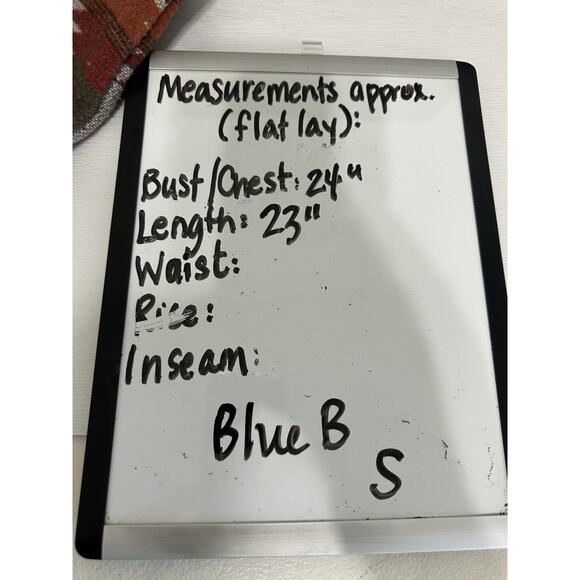 Measurements approx.
(flat lay):
Bust/Chest: 24"
Length: 23"
Waist:
Rise:
Inseam:
Blue B
S